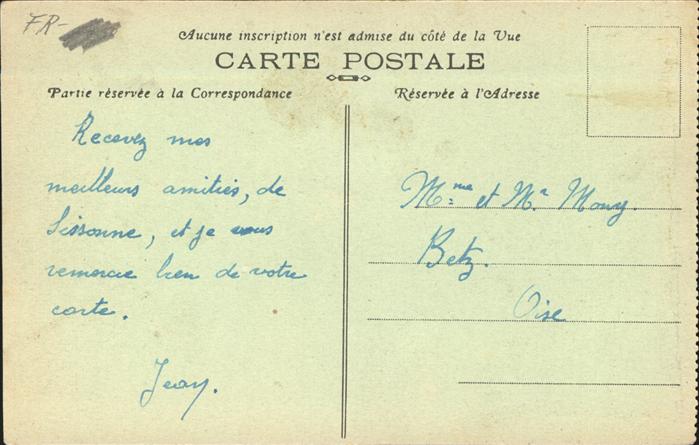 FR-
Aucune inscription n'est admise du côté de la Vue
CARTE POSTALE
Partie réservée à la Correspondance
Réservée à l'Adresse
Recevez mes
meilleurs amitiés, de
Sissonne, et je vous
remercie bien de votre
carte.
Jean.
Mme et Mr
Betz.
Oise